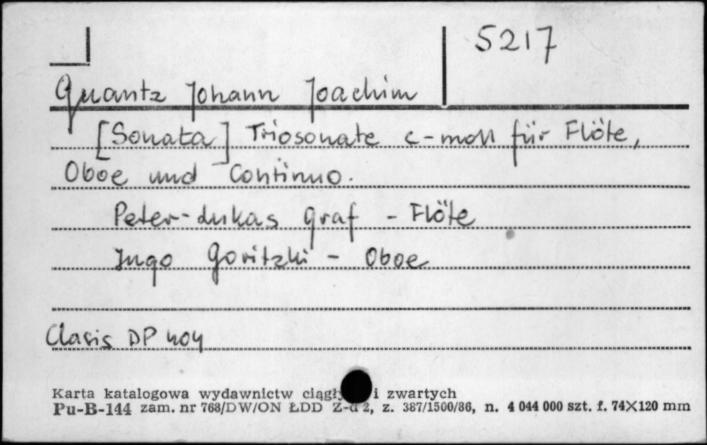 5217
Quantz Johann Joachim
[Sonata] Triosonate c-moll für Flöte,
Oboe und Continuo.
Peter-Lukas Graf - Flöte
Ingo Goritzki - Oboe
Claves DP 404
Karta katalogowa wydawnictw i zwartych
Pu-B-144 zam. nr 768/DW/ON ŁDD z. 387/1500/86, n. 4 044 000 szt. f. 74X120 mm